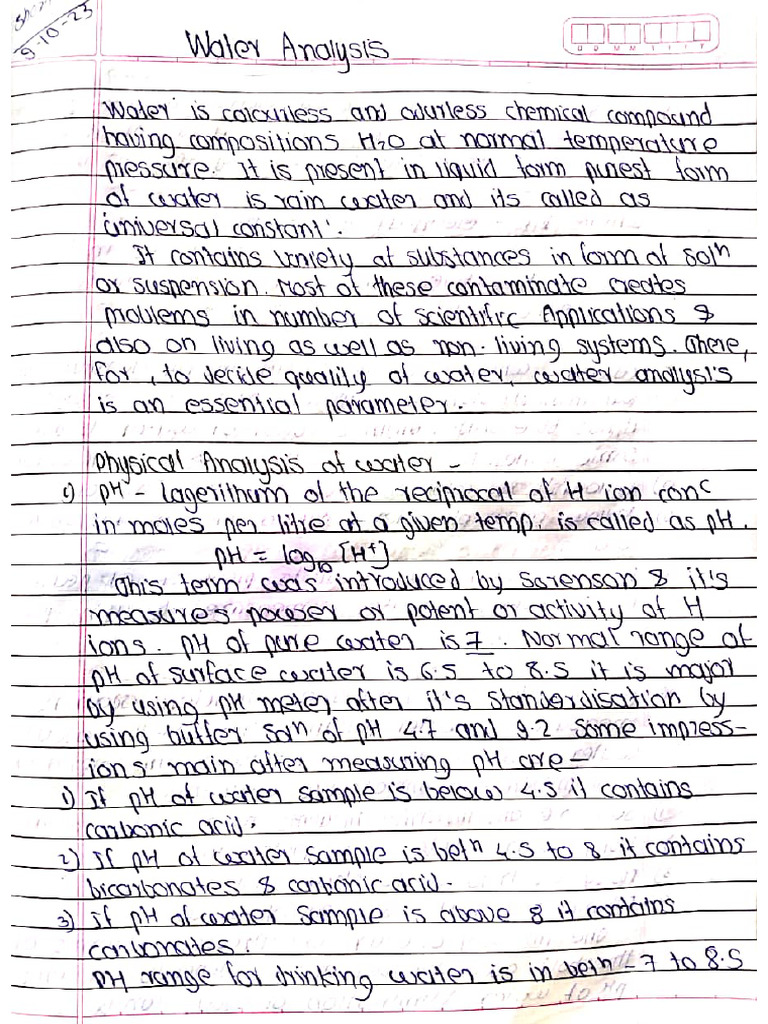 9-10-23
Water Analysis
D D M M Y Y Y Y
Water is colourless and odurless chemical compound
having compositions H2O at normal temperature
pressure. It is present in liquid form purest form
of water is rain water and its called as
'universal constant'.
It contains variety of substances in form of solⁿ
or suspension. Most of these contaminate creates
problems in number of scientific Applications &
also on living as well as non-living systems. There,
for, to decide quality of water, water analysis
is an essential parameter.
Physical Analysis of water -
pH - lagerithum of the reciprocal of H ion conc
in moles per litre at a given temp. is called as pH.
pH = log10 [H+]
This term was introduced by Sorenson & it's
measures power or potent or activity of H
ions. pH of pure water is 7. Normal range of
pH of surface water is 6.5 to 8.5 it is major
by using pH meter after it's standerdisation by
using buffer solⁿ of pH 4.7 and 9.2 Some impress-
ions main after measuring pH are -
1) If pH of water sample is below 4.5 it contains
carbonic acid.
2) If pH of water sample is betⁿ 4.5 to 8 it contains
bicarbonates & carbonic acid.
3) If pH of water sample is above 8 it contains
carbonates.
PH range for drinking water is in betⁿ - 7 to 8.5